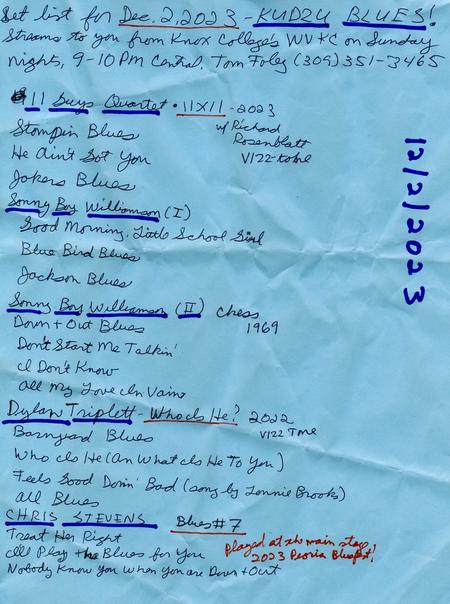 Set list for Dec. 2, 2023 - KUDZU BLUES!
Streams to you from Knox College's WVKC on Sunday
nights, 9-10 PM Central. Tom Foley (309) 351-3465
11 Guys Quartet • 11X11 - 2023
w/ Richard
Rosenblatt
VizzTone
Stompin Blues
He Ain't Got You
Jokers Blues
12/2/2023
Sonny Boy Williamson (I)
Good Morning, Little School Girl
Blue Bird Blues
Jackson Blues
Sonny Boy Williamson (II) Chess
1969
Down + Out Blues
Don't Start Me Talkin'
I Don't Know
All My Love In Vain
Dylan Triplett - Who Is He? 2022
VizzTone
Barnyard Blues
Who Is He (An What Is He To You)
Feels Good Doin' Bad (song by Lonnie Brooks)
All Blues
CHRIS STEVENS Blues #7
Treat Her Right
I'll Play the Blues for You
Nobody Know You When You are Down + Out
Played at the main stage,
2023 Peoria Bluesfest!